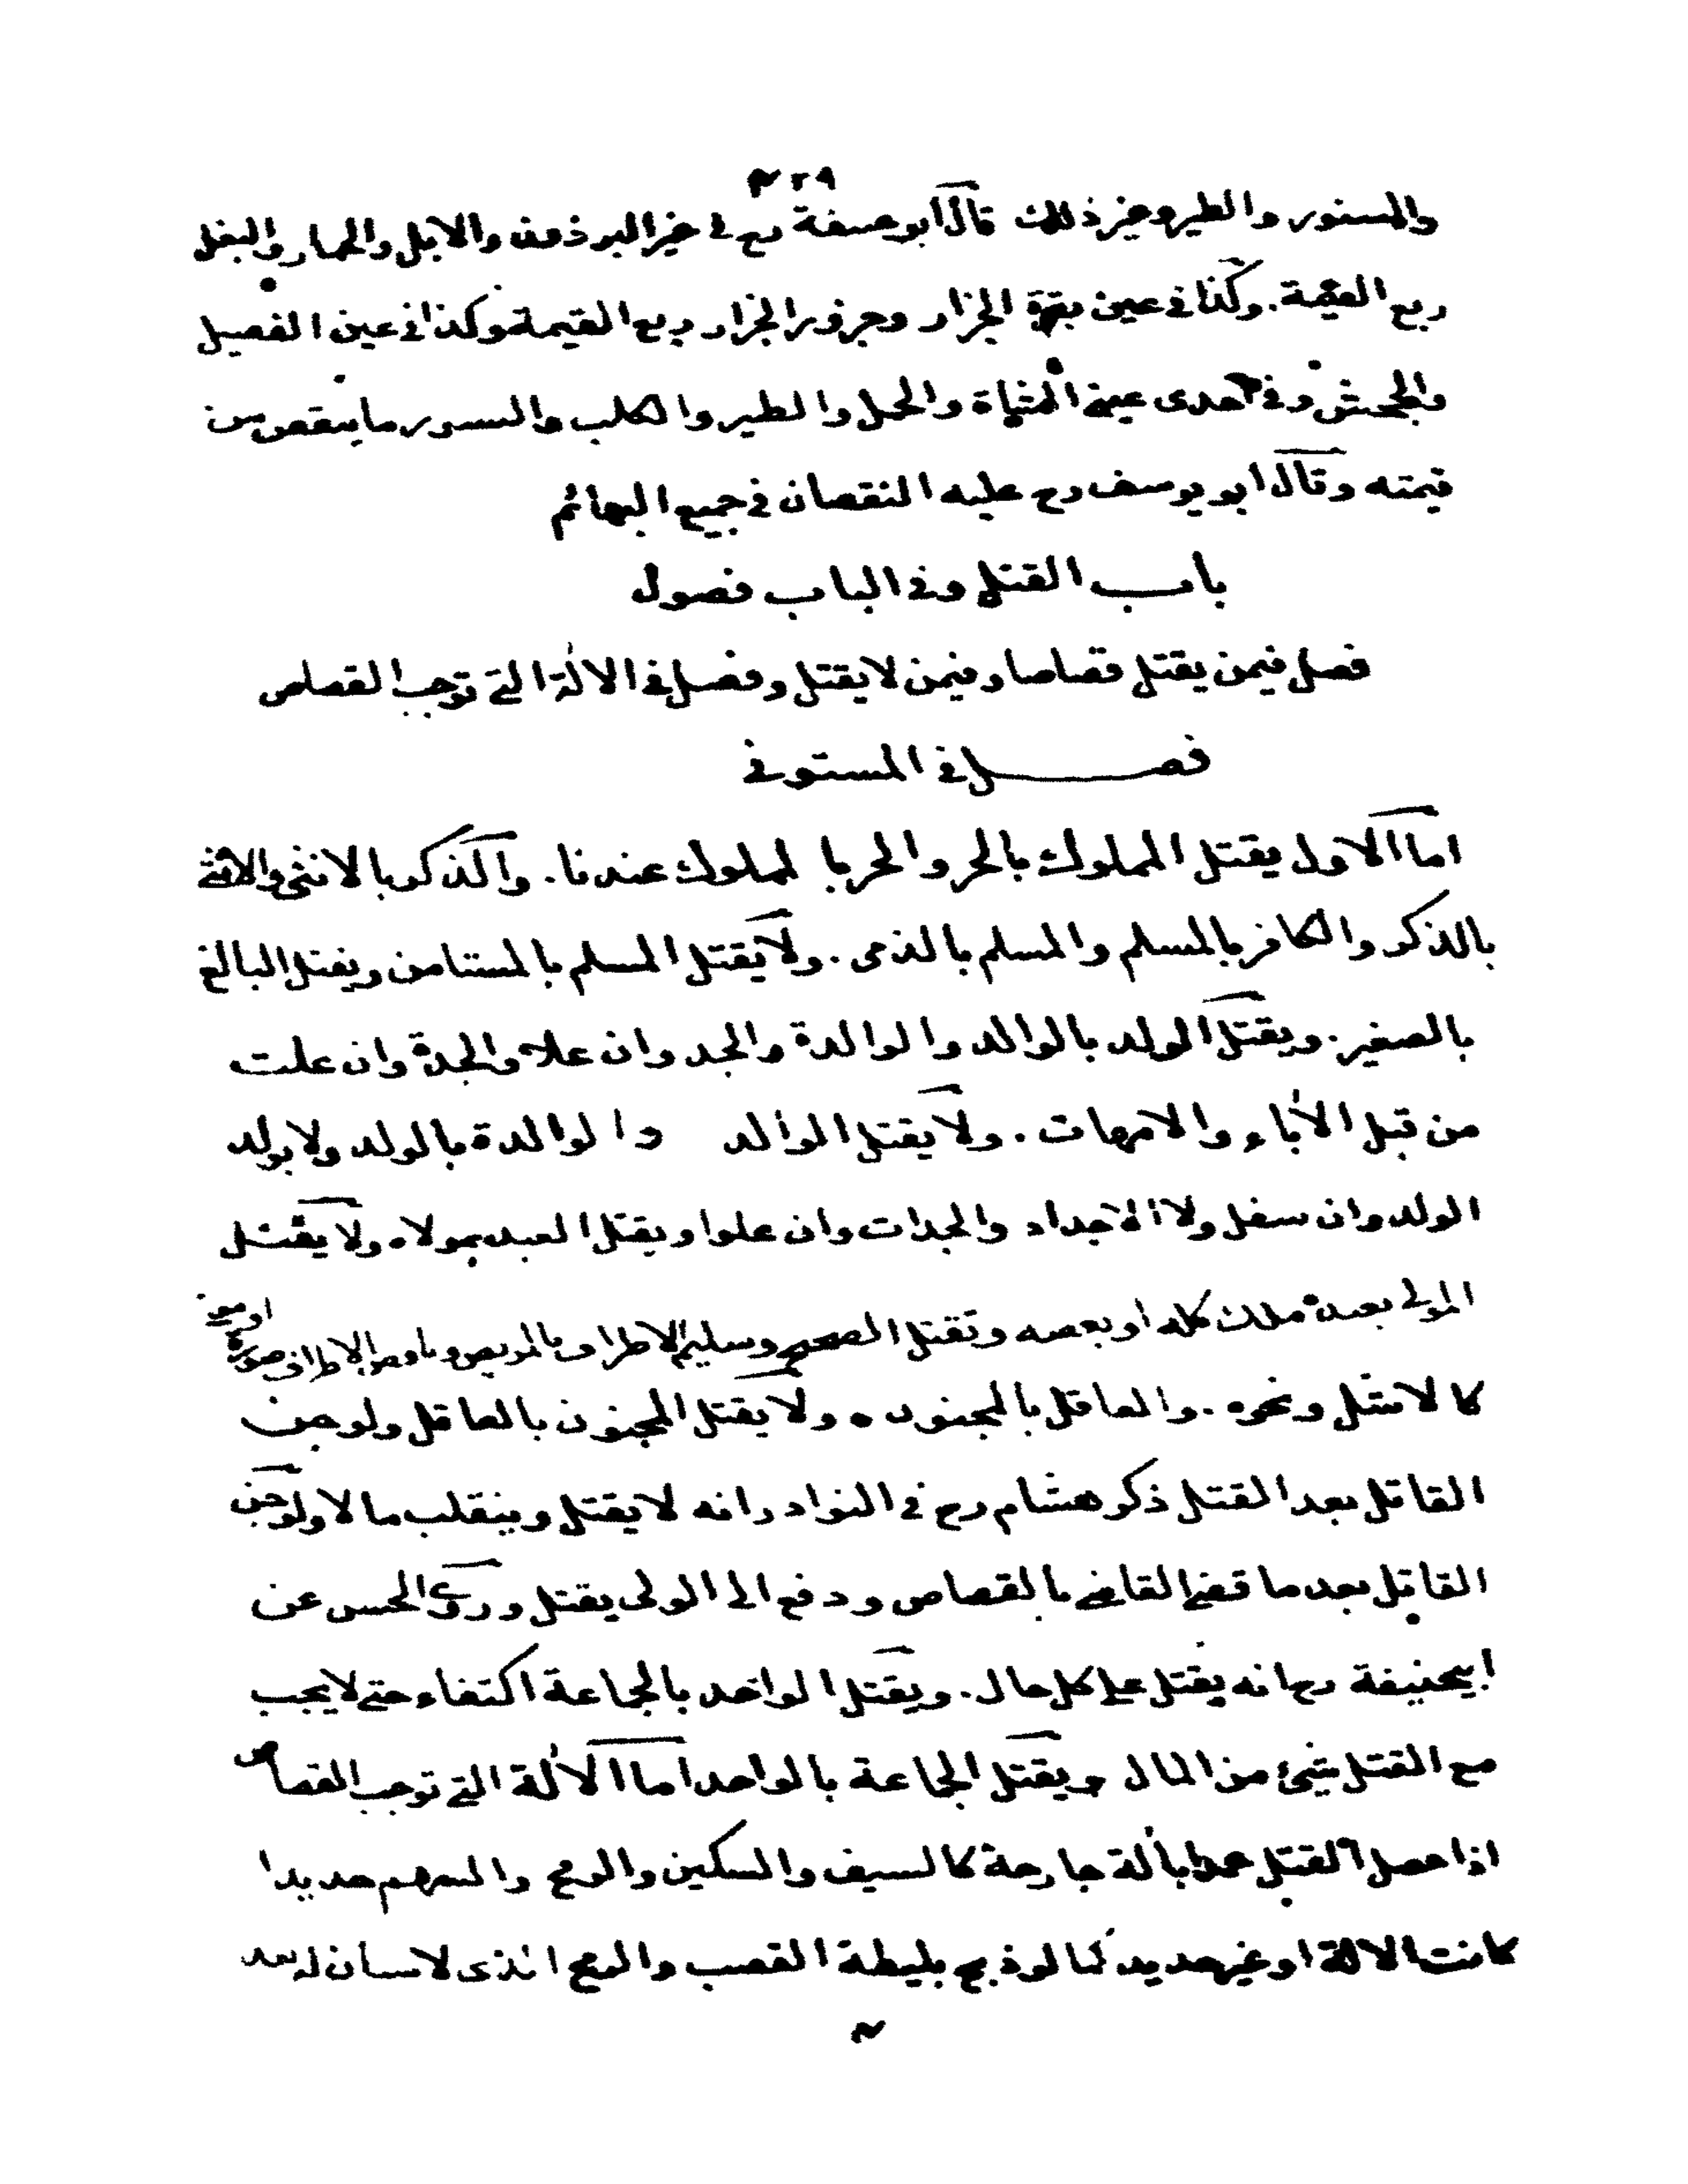 ٣٢٩
والسنور والطير وغير ذلك قال ابو حنيفة رح في والابل والحمار والبغل
ربع القيمة. وكذا في عين بقرة الجزار وجزور الجزار ربع القيمة وكذا في عين الفصيل
والجحش وفي احدى عيني الشاة والحمل والطير والكلب والسنور ما ينقص من
قيمته وقال ابو يوسف رح عليه النقصان في جميع البهائم
باب القتل وفي الباب فصول
فصل فيمن يقتل قصاصا وفيمن لا يقتل وفصل في الالة التي توجب القصاص
فصل في المستوفي
اما الاول يقتل المملوك بالحر والحر با لمملوك عندنا. والذكر بالانثى والانثى
بالذكر والكافر بالمسلم والمسلم بالذمى. ولا يقتل المسلم بالمستامن ويقتل البالغ
بالصغير. ويقتل الولد بالوالد والوالدة والجد وان علا والجدة وان علت
من قبل الأباء والامهات. ولا يقتل الوالد والوالدة بالولد ولا بولد
الولد وان سفل ولا الاجداد والجدات وان علوا ويقتل العبد بمولاه ولا يقتل
المولى بعبده ملك كله او بعضه ويقتل الصحيح وسليم الاطراف بالمريض وناقص الاطراف صورة او معنى
كالاشل ونحوه. والعاقل بالمجنون ولا يقتل المجنون بالعاقل ولو جن
القاتل بعد القتل ذكر هشام رح في النوادر انه لا يقتل وينقلب مالا ولو جن
القاتل بعد ما قضى القاضي بالقصاص ودفع الى الولى يقتل وروى الحسن عن
ابيحنيفة رح انه يقتل على كل حال. ويقتل الواحد بالجماعة اكتفاء حتى لا يجب
مع القتل شئ من المال ويقتل الجماعة بالواحد اما الألة التي توجب القصاص
اذا حصل القتل عمدا بألة جارحة كالسيف والسكين والرمح والسهم حديدا
كانت الالة او غير حديد كما لو ذبح بليطة القصب والرمح الذى لا سنان له بعد